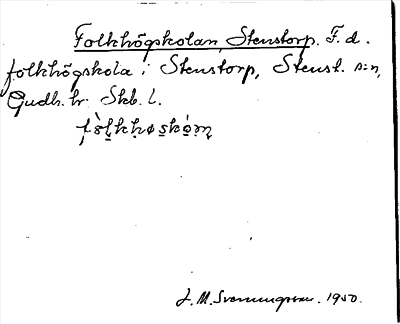 Folkhögskolan, Stenstorp. F. d.
folkhögskola i Stenstorp, Stenst. s:n,
Gudh. hr. Skb. l.
J. M. 1950.